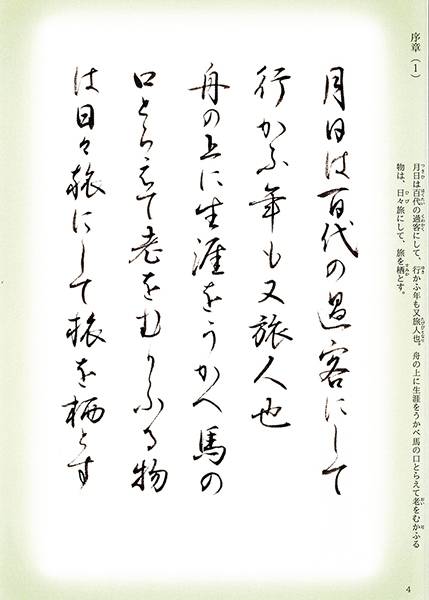 序章（1）
月日は百代の過客にして、行かふ年も又旅人也。舟の上に生涯をうかべ馬の口とらえて老をむかふる
物は、日々旅にして、旅を栖とす。
月日は百代の過客にして
行かふ年も又旅人也
舟の上に生涯をうかへ馬の
口とらえて老をむかふる物
は日々旅にして旅を栖とす
4